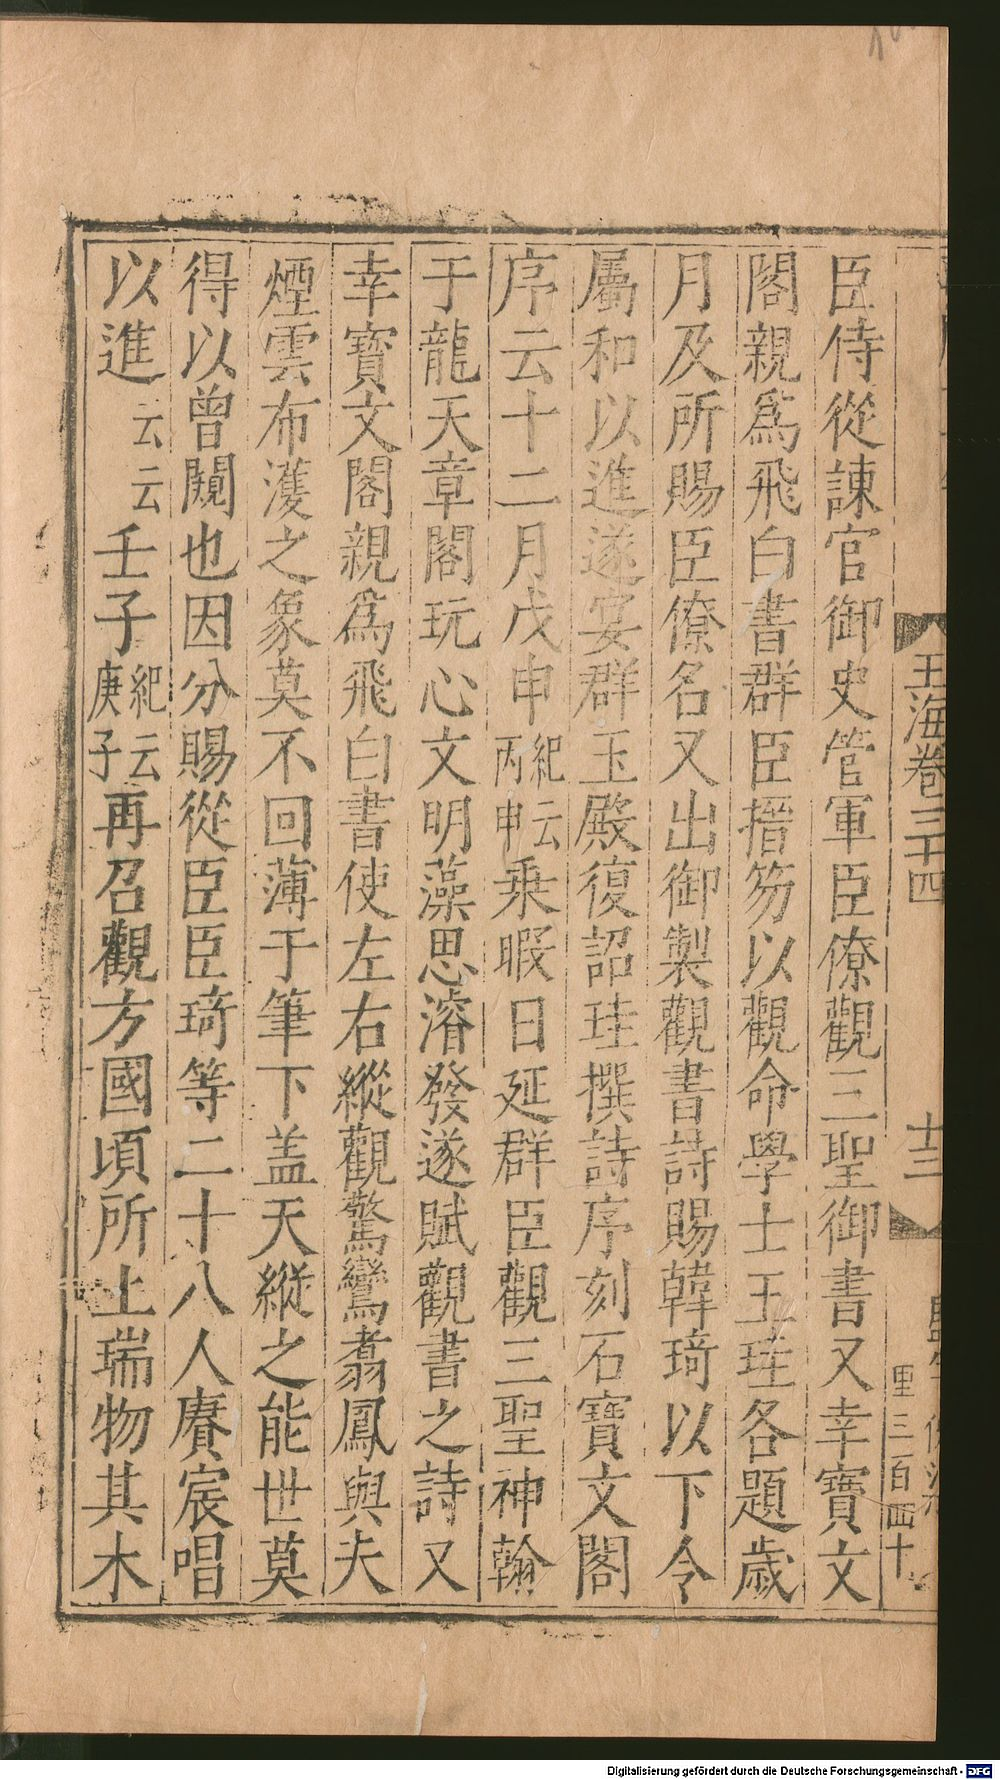 玉海卷三十四
十三
臣侍從諫官御史管軍臣僚觀三聖御書又幸寶文
閣親爲飛白書群臣搢笏以觀命學士王珪各題歲
月及所賜臣僚名又出御製觀書詩賜韓琦以下令
屬和以進遂宴群玉殿復詔珪撰詩序刻石寶文閣
序云十二月戊申紀云丙申乗暇日延群臣觀三聖神翰
于龍天章閣玩心文明藻思濬發遂賦觀書之詩又
幸寶文閣親爲飛白書使左右縱觀驚鸞翥鳳與夫
煙雲布濩之象莫不回薄于筆下盖天縱之能世莫
得以曾闚也因分賜從臣臣琦等二十八人賡宸唱
以進云云壬子紀云庚子再召觀方國頃所上瑞物其木
Digitalisierung gefördert durch die Deutsche Forschungsgemeinschaft - DFG